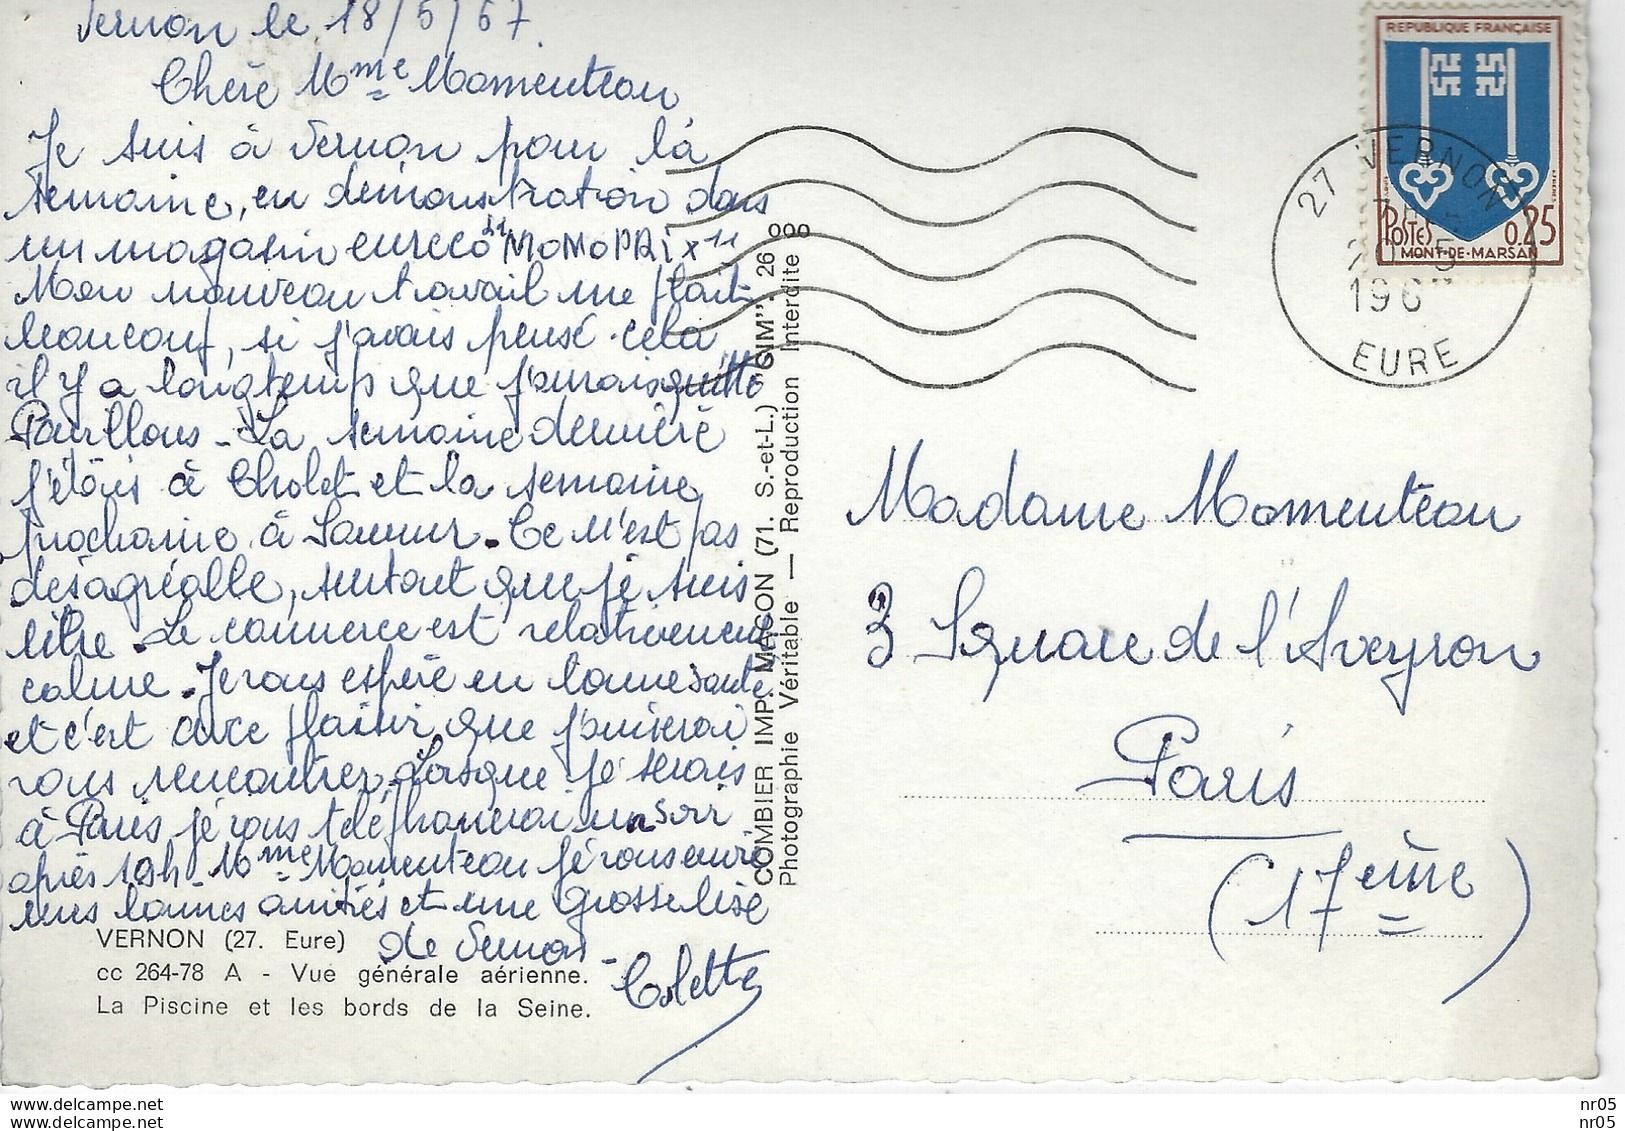 Vernon le 18/5/67.
Chère Mme Momenteau
Je suis à Vernon pour la
semaine, en démonstration dans
un magasin "MONOPRIX"
Mon nouveau travail me plait
beaucoup, si j'avais pensé cela
il y a longtemps que j'aurais quitté
La semaine dernière
j'étais à Cholet et la semaine
prochaine à Saumur. Ce n'est pas
désagréable, surtout que je suis
libre. Le commerce est relativement
calme. Je vous espère en bonne santé
et c'est avec plaisir que j'aimerai
vous rencontrer. Lorsque je serais
à Paris je vous téléphonerai un soir
après 19h. Mme Momenteau je vous envoie
mes bonnes amitiés et une grosse bise
de Vernon.
Colette
VERNON (27. Eure)
cc 264-78 A - Vue générale aérienne.
La Piscine et les bords de la Seine.
COMBIER IMP. MACON (71. S.-et-L.) "CIM". 26
Photographie Véritable — Reproduction Interdite
REPUBLIQUE FRANÇAISE
POSTES 0,25
MONT-DE-MARSAN
27 VERNON
196
EURE
Madame Momenteau
3 Square de l'Aveyron
Paris
(17eme)
www.delcampe.net nr05
www.delcampe.net nr05